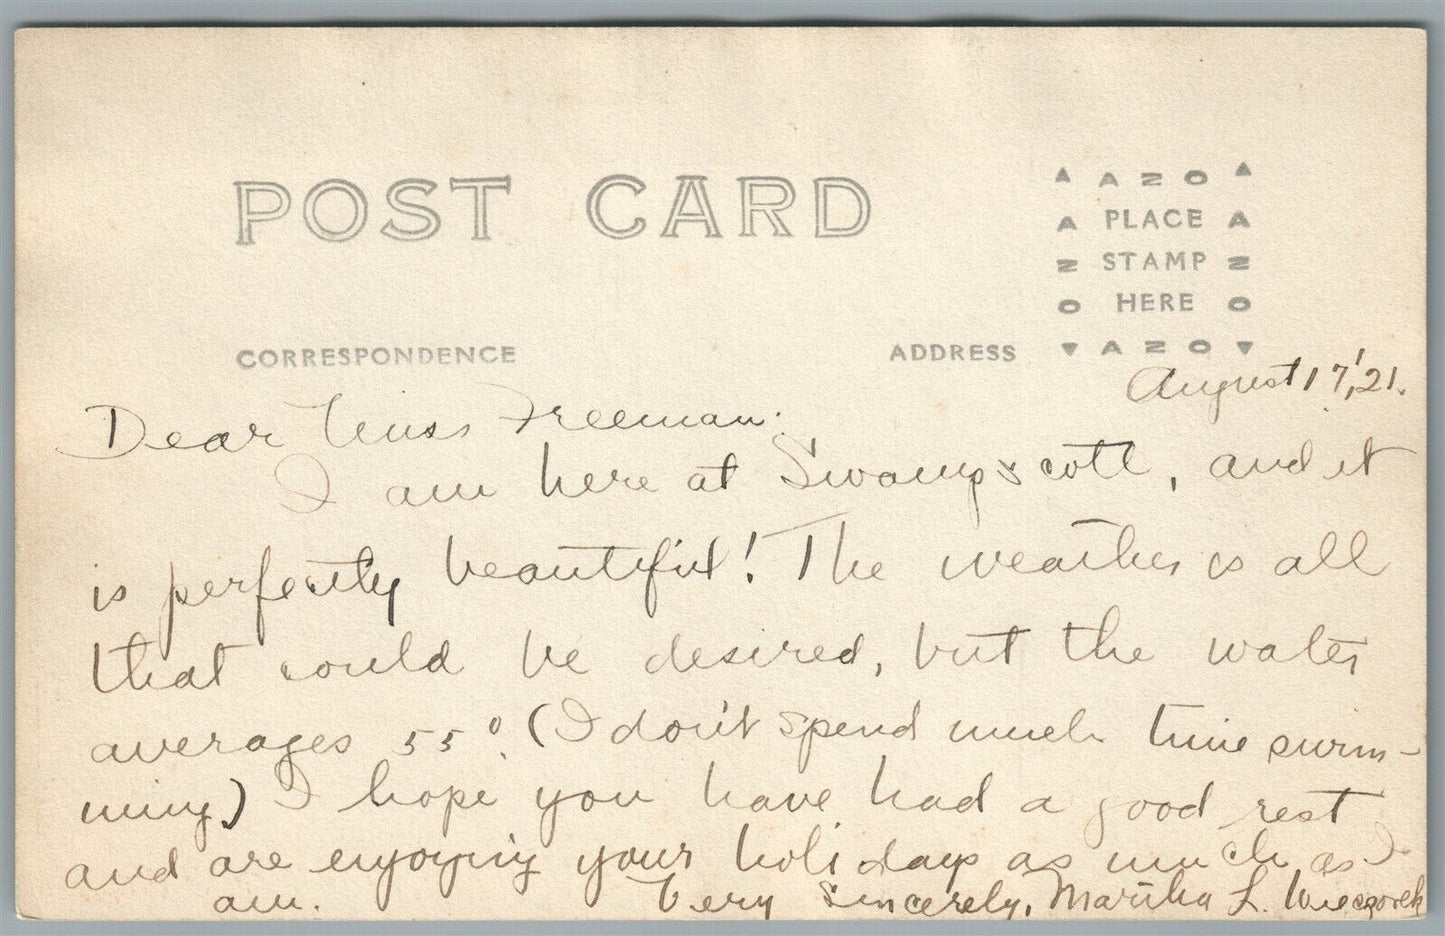 POST CARD
AZO
A PLACE A
N STAMP N
O HERE O
AZO
CORRESPONDENCE
ADDRESS
August 17, '21.
Dear Miss Freeman:
I am here at Swampscott, and it
is perfectly beautiful! The weather is all
that could be desired, but the water
averages 55°. (I don't spend much time swim-
ming) I hope you have had a good rest
and are enjoying your holidays as much as I
am. Very Sincerely, Martha L. Wieczorek